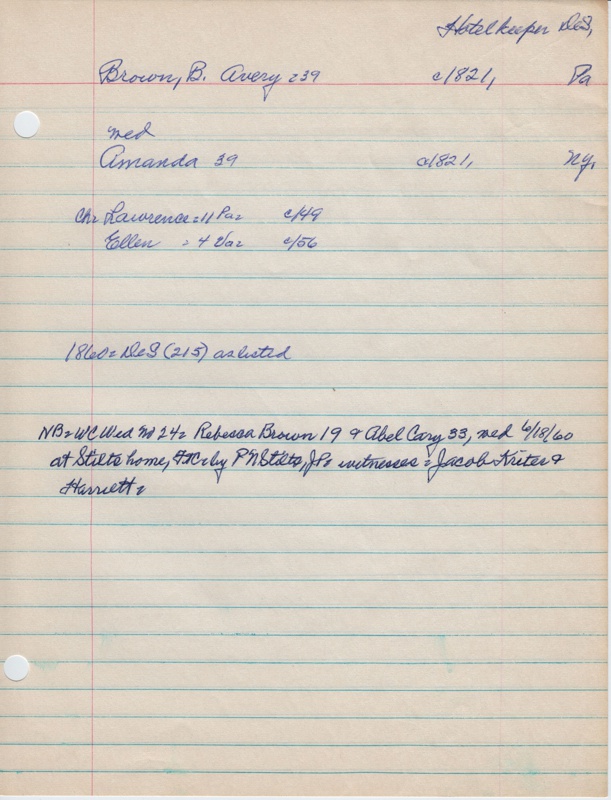 Hotelkeeper DeS,
Brown, B. Avery = 39 c/1821, Pa
wed
Amanda 39 c/1821, NY,
Ch = Lawrence = 11 Pa = c/49
Ellen = 4 Va = c/56
1860 = DeS (215) as listed
NB = WC Wed No 24 = Rebecca Brown 19 & Abel Cary 33, wed 6/18/60
at Stilts home, by P N Stilts, JP = witnesses = Jacob Kriter &
Harriett =